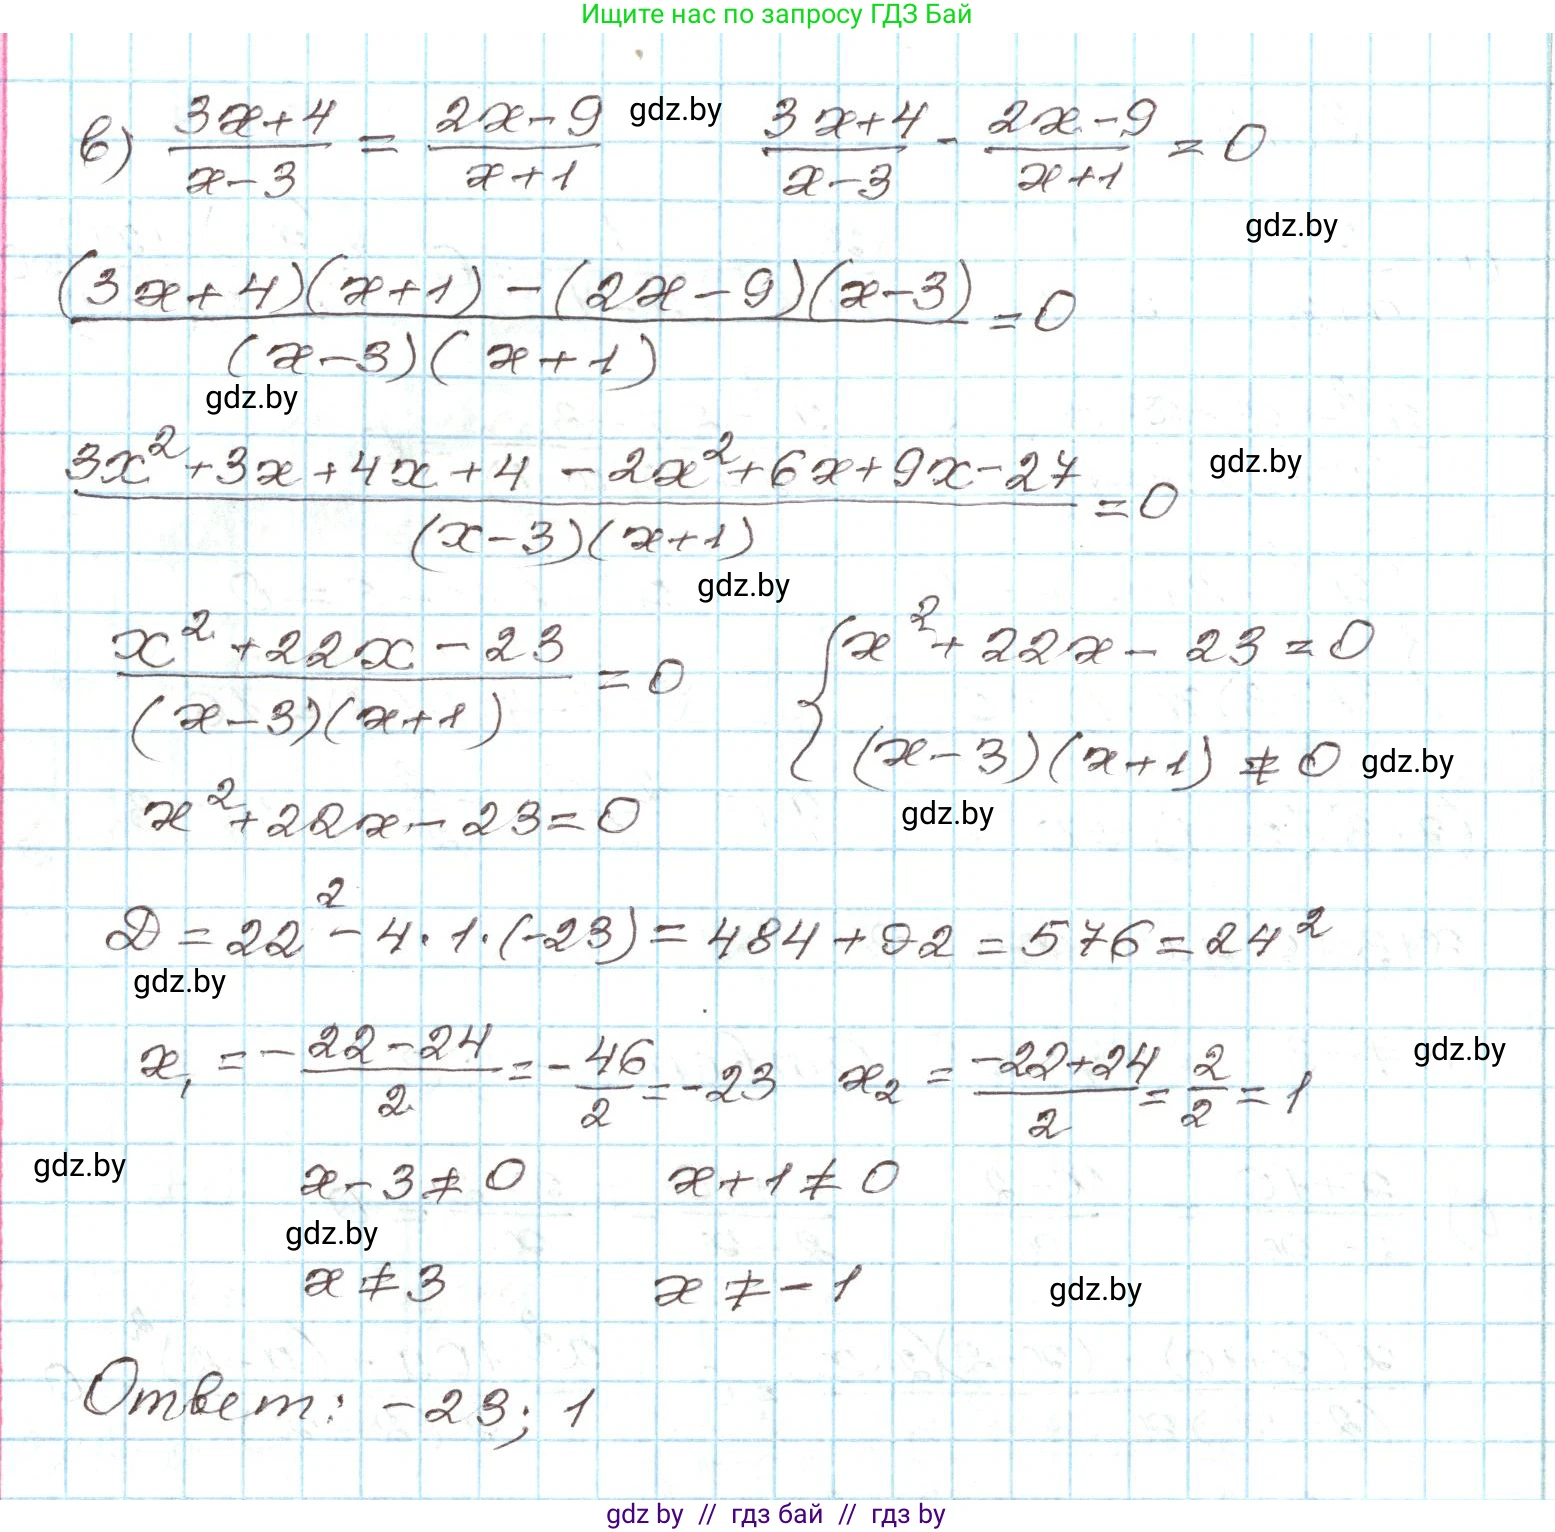 Ищите нас по запросу ГДЗ Бай
в) (3x+4)/(x-3) = (2x-9)/(x+1) gdz.by (3x+4)/(x-3) - (2x-9)/(x+1) = 0
gdz.by
((3x+4)(x+1) - (2x-9)(x-3))/((x-3)(x+1)) = 0
gdz.by
(3x²+3x+4x+4-2x²+6x+9x-27)/((x-3)(x+1)) = 0 gdz.by
gdz.by
(x²+22x-23)/((x-3)(x+1)) = 0 { x²+22x-23=0
(x-3)(x+1) ≠ 0 gdz.by
x²+22x-23=0 gdz.by
D = 22² - 4·1·(-23) = 484+92 = 576 = 24²
gdz.by
x₁ = -(22-24)/2 = -46/2 = -23 x₂ = (-22+24)/2 = 2/2 = 1 gdz.by
gdz.by x-3≠0 x+1≠0
gdz.by
x≠3 x≠-1 gdz.by
Ответ: -23; 1
gdz by // гдз бай // гдз by